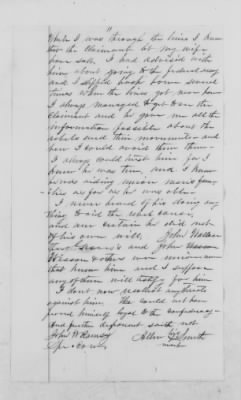 While I was through the lines I knew
that the Claimant let my wife
have salt. I had advised with
him about going to the federal army
and I slipped back home several
times when the lines got near home
I always managed to get to see the
Claimant and he gave me all the
information possible about the
rebels and their movements and
how I could avoid them there
I always could trust him for I
knew he was true, and I know
him aiding union men's fami-
lies as far as he was able.
I never heard of his doing any
thing to aid the rebel cause,
and am certain he did not
of his own will. John Wallace
and John
Wesson & others were union men
that knew him and I suppose
any of them will testify for him
I don't now recollect any thing
against him. He could not have
proved himself loyal to the confederacy
And further deponent saith not
John W Ramsey Allen his X Smith
Spl. Co. mark